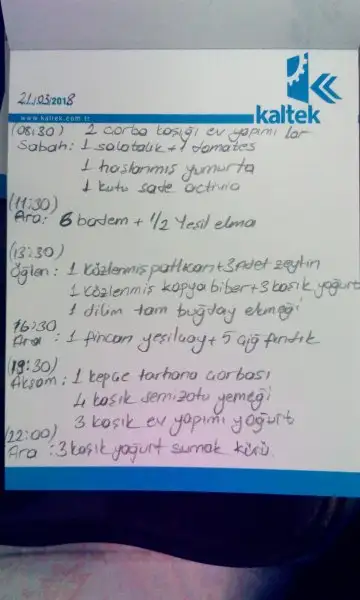 21/03/2018
www.kaltek.com.tr
kaltek
(08:30) 2 çorba kaşığı ev yapımı lor
Sabah: 1 salatalık + 1 domates
1 haşlanmış yumurta
1 kutu sade activia
(11:30)
Ara: 6 badem + 1/2 Yeşil elma
(13:30)
Öğlen: 1 közlenmiş patlıcan + 3 adet zeytin
1 közlenmiş kapya biber + 3 kaşık yoğurt
1 dilim tam buğday ekmeği
16:30
Ara : 1 fincan yeşilçay + 5 çiğ fındık
(19:30)
Akşam: 1 kepçe tarhana çorbası
4 kaşık semizotu yemeği
3 kaşık ev yapımı yoğurt
(22:00)
Ara : 3 kaşık yoğurt sumak kürü.